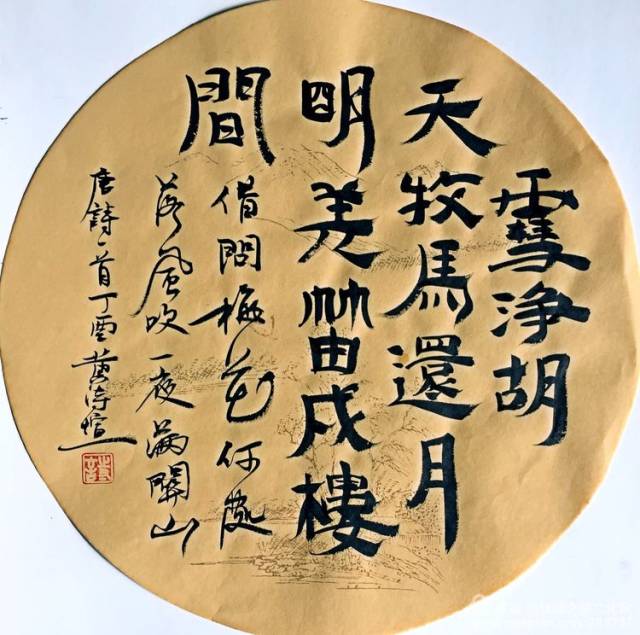 雪淨胡
天牧馬還月
明羌笛戍樓
間
借問梅花何處
落風吹一夜滿關山
唐詩一首丁酉黃